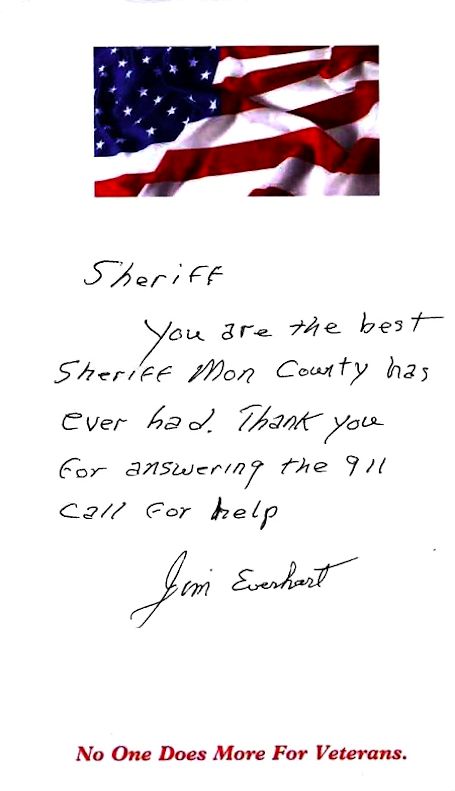 Sheriff
You are the best
Sheriff Mon County has
ever had. Thank you
for answering the 911
call for help
Jim Everhart
No One Does More For Veterans.